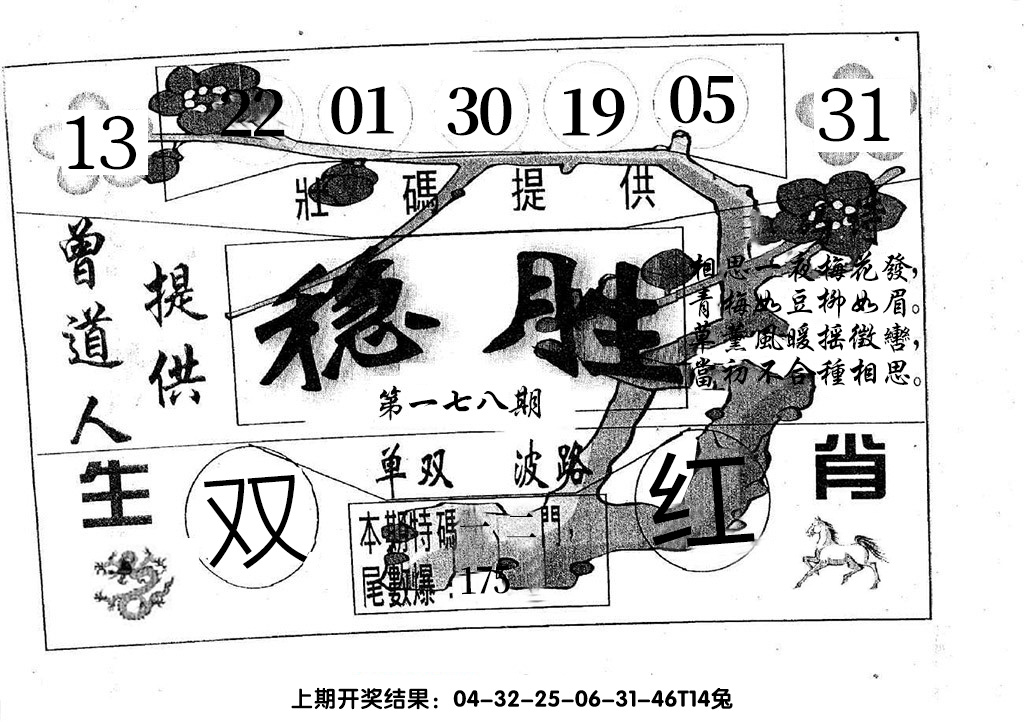 13 22 01 30 19 05 31
壯碼提供
曾道人
提供
稳胜
第一七八期
相思一夜梅花發，
青梅如豆柳如眉。
草薰風暖摇徵轡，
當初不合種相思。
单双 波路
生肖
双
红
本期特碼一、二門，
尾數爆：175
上期开奖结果：04-32-25-06-31-46T14兔